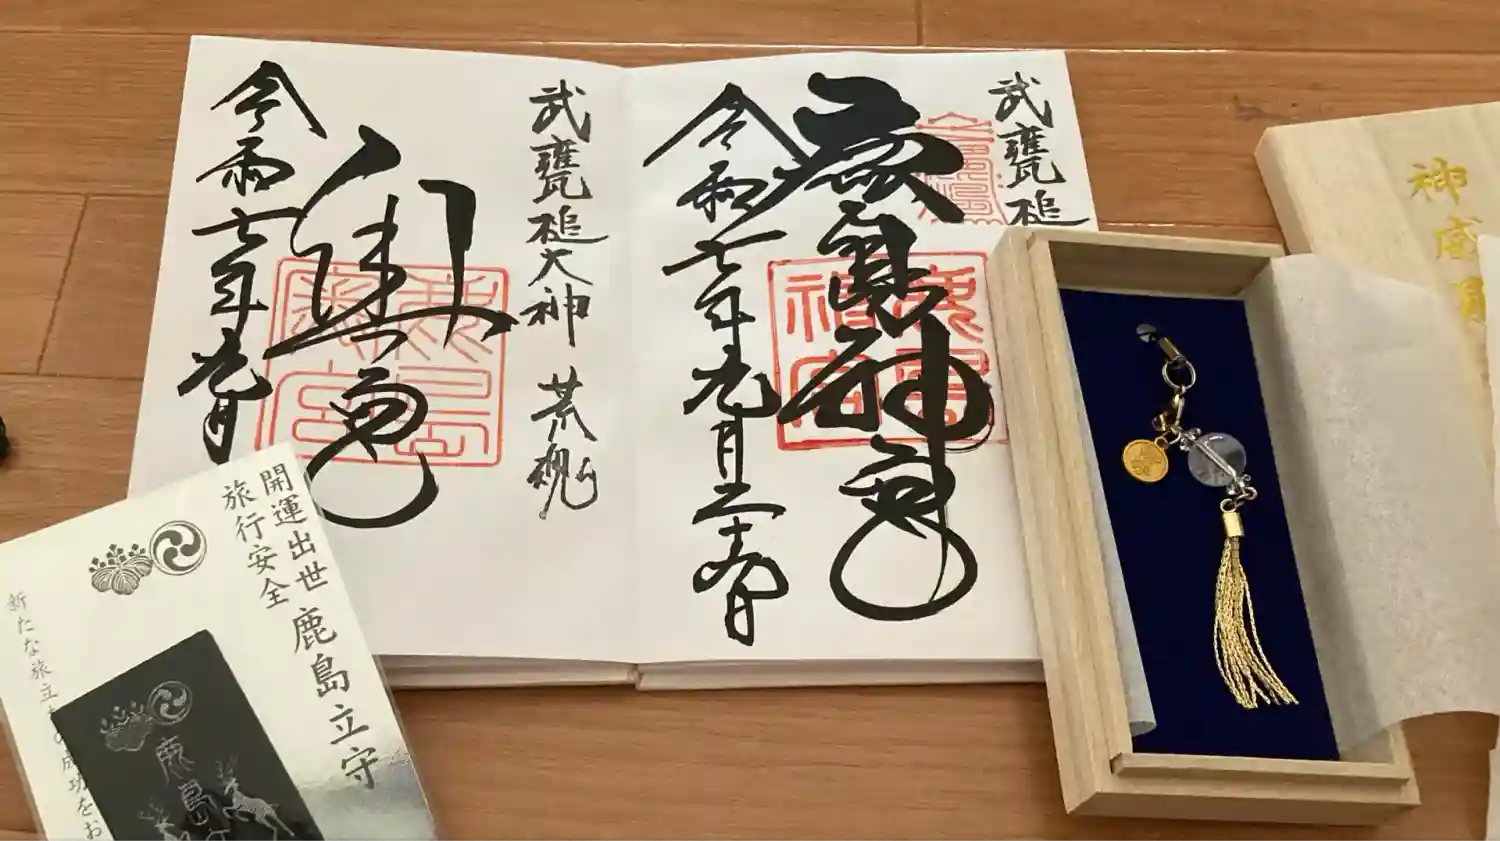 武甕槌
鹿島神宮
鹿島神宮
令和七年九月二十
武甕槌大神 荒魂
奥宮
令和七年九月
開運出世
旅行安全
鹿島立守
新たな旅立ちの成功をお
鹿島
神威